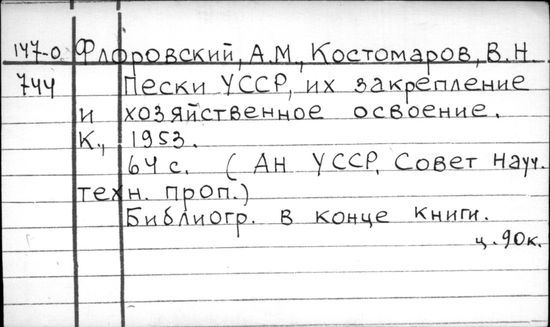 147-0 Флоровский, А.М., Костомаров, В.Н.
744 Пески УССР, их закрепление
и хозяйственное освоение.
К., 1953.
64 с. (Ан УССР. Совет науч.
техн. проп.)
Библиогр. в конце книги.
ц. 90к.